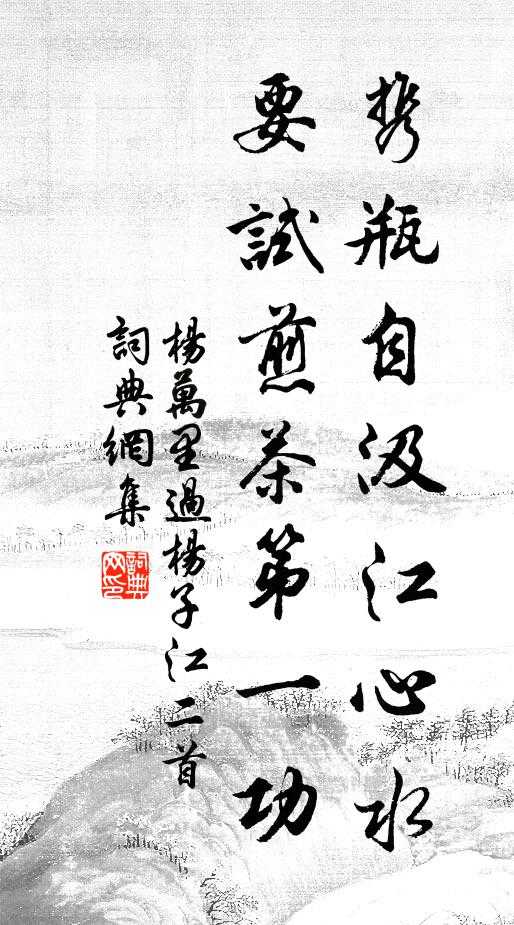 携瓶自汲江心水
要試煎茶第一功
楊萬里過楊子江二首
詞典網集
詞典
网印